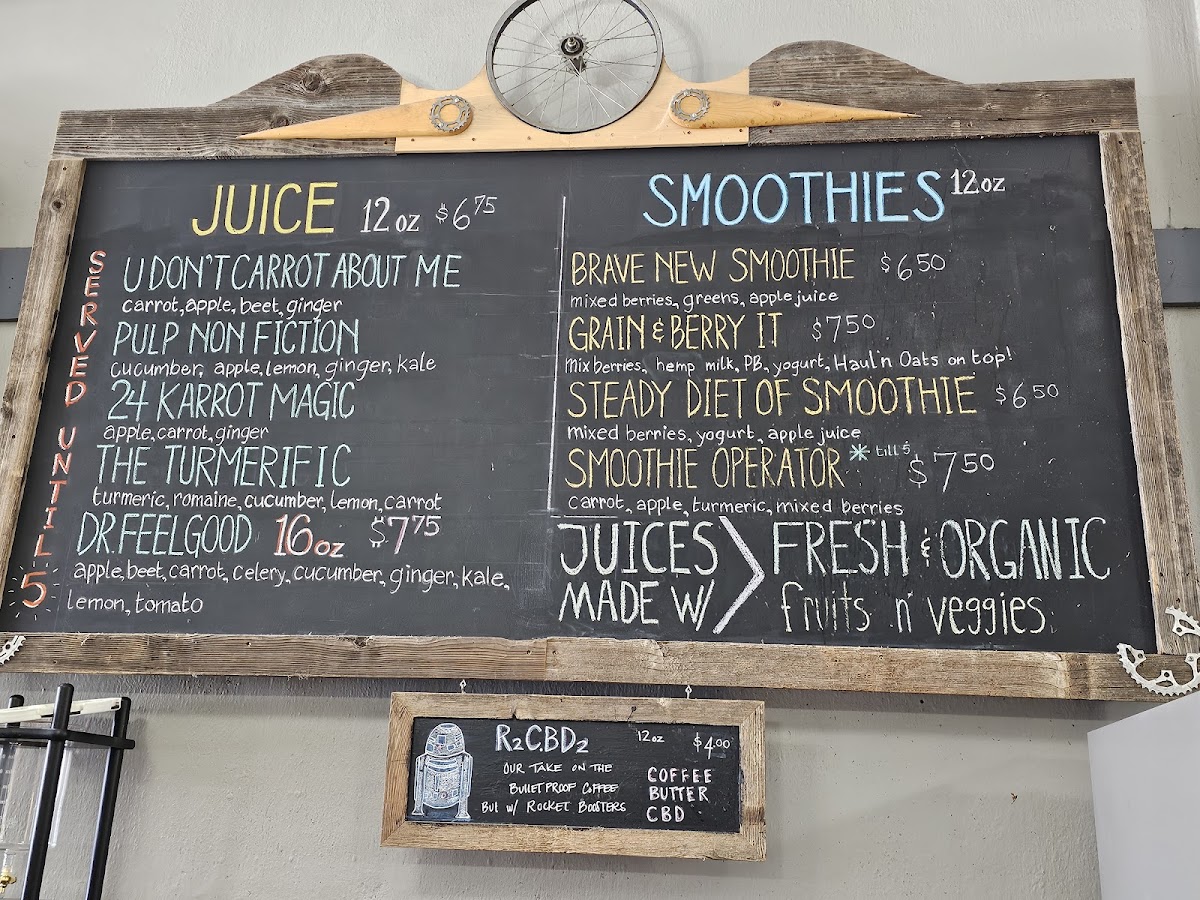 JUICE 12 oz $6 75
SERVED UNTIL 5
U DON'T CARROT ABOUT ME
carrot, apple, beet, ginger
PULP NON FICTION
cucumber, apple, lemon, ginger, kale
24 KARROT MAGIC
apple, carrot, ginger
THE TURMERIFIC
turmeric, romaine, cucumber, lemon, carrot
DR. FEELGOOD 16 oz $7 75
apple, beet, carrot, celery, cucumber, ginger, kale,
lemon, tomato
SMOOTHIES 12 oz
BRAVE NEW SMOOTHIE $6 50
mixed berries, greens, apple juice
GRAIN & BERRY IT $7 50
mix berries, hemp milk, PB, yogurt, Haul'n Oats on top!
STEADY DIET OF SMOOTHIE $6 50
mixed berries, yogurt, apple juice
SMOOTHIE OPERATOR * till 5 $7 50
carrot, apple, turmeric, mixed berries
JUICES > FRESH & ORGANIC
MADE W/ fruits n' veggies
R2CBD2 12oz $4.00
OUR TAKE ON THE
BULLETPROOF COFFEE
BUT W/ ROCKET BOOSTERS
COFFEE
BUTTER
CBD